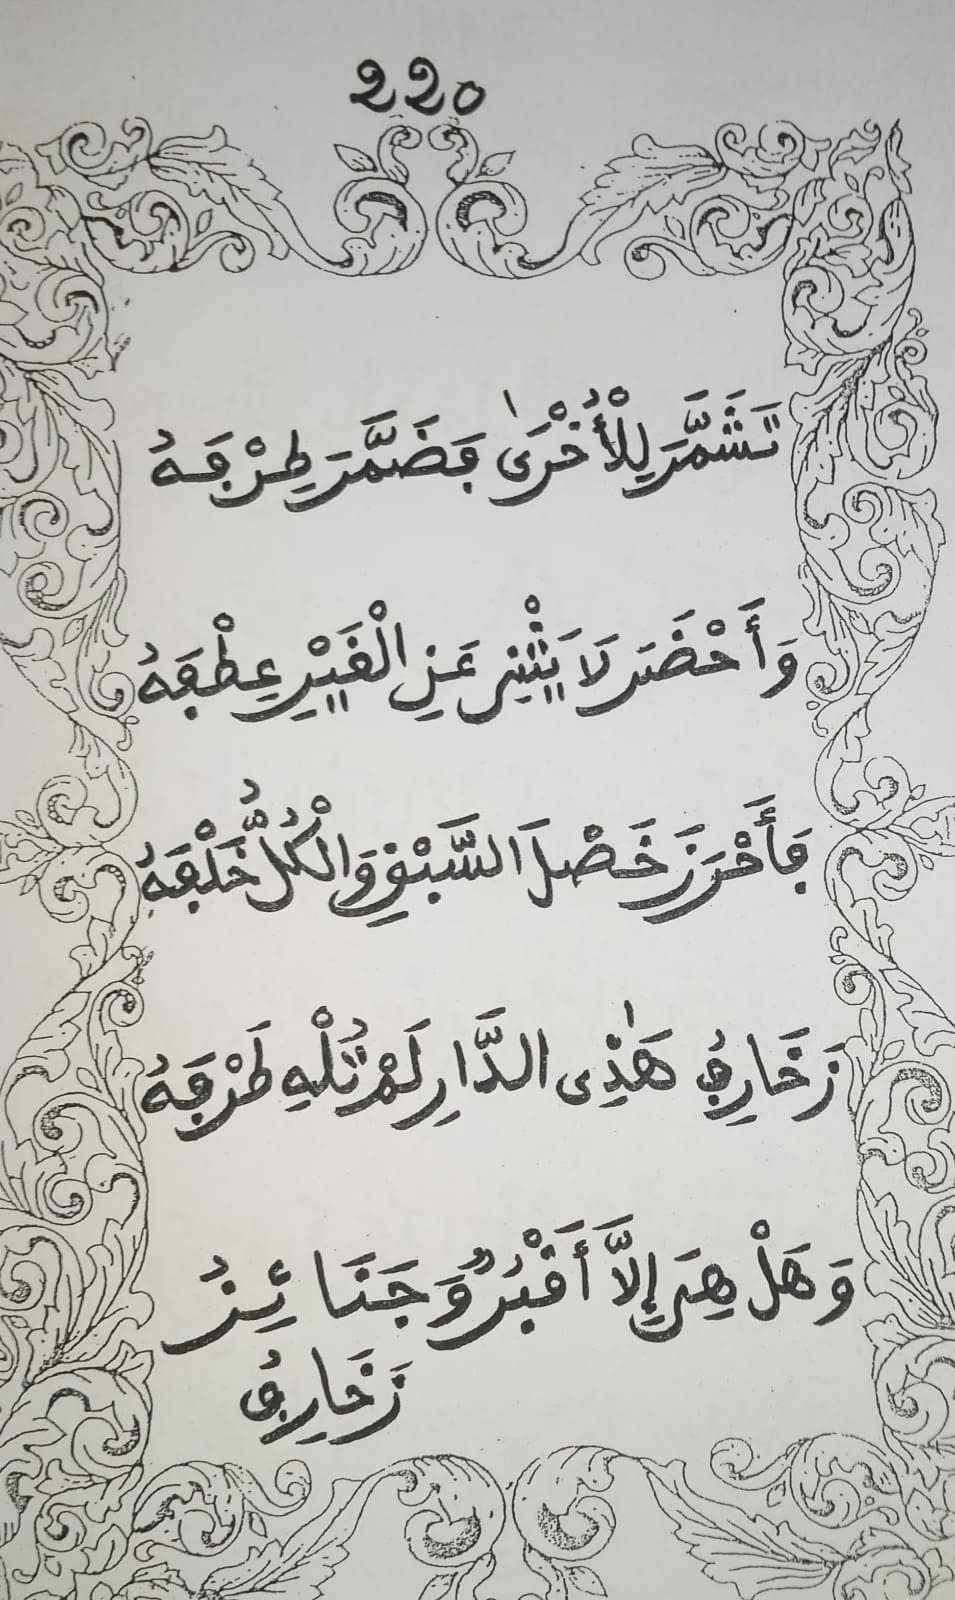 220
تَشَمَّرَ لِلْأُخْرَىٰ فَضَمَّرَ طِرْفَهُ
وَأَحْضَرَ لَا يَثْنِي عَنِ الْغَيْرِ عِطْفَهُ
فَأَحْرَزَ خَصْلَ السَّبْقِ وَالْكُلُّ خَلْفَهُ
زَخَارِفُ هَٰذِى الدَّارِ لَمْ تُلْهِ طَرْفَهُ
وَهَلْ هِيَ إِلَّا أَقْبُرٌ وَجَنَائِزُ
زَخَارِفُ